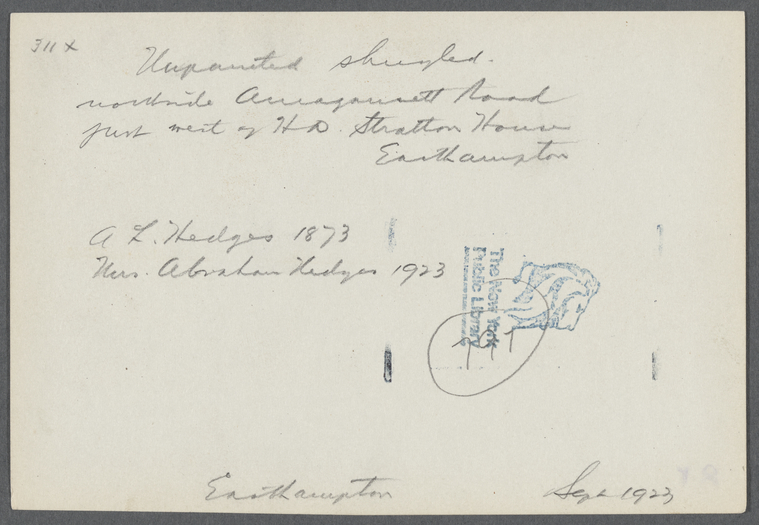 311x
Unpainted shingled.
northside Amagansett Road
just west of H D. Stratton House
Easthampton
A L. Hedges 1873
Mrs. Abraham Hedges 1923
The New York
Public Library
Easthampton
Sept 1923